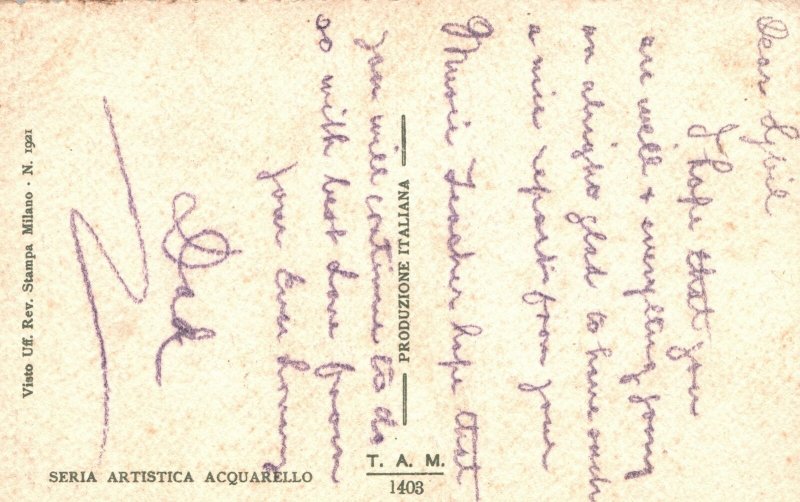 Dear Sybil
I hope that you
are well & everything going
on alright glad to have such
a nice report from your
Music Teacher hope that
you will continue to do
so with best love from
your Ever Loving
Dad
PRODUZIONE ITALIANA
Visto Uff. Rev. Stampa Milano · N. 1921
SERIA ARTISTICA ACQUARELLO
T. A. M.
1403